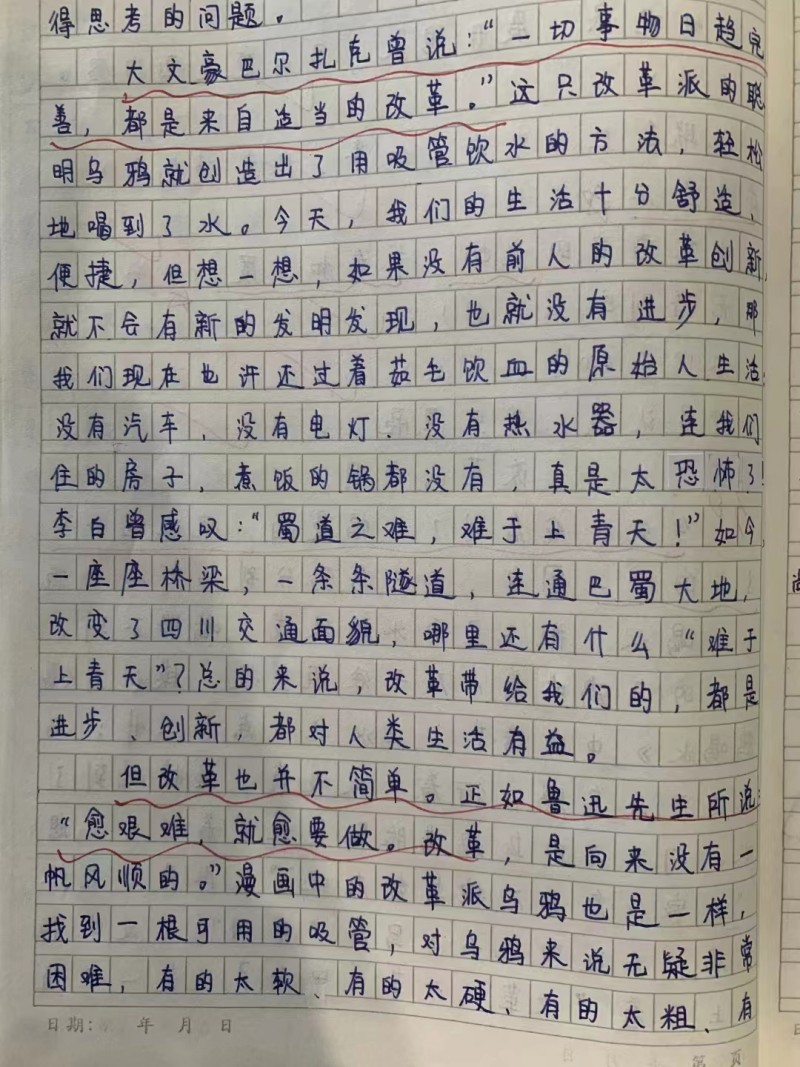 得思考的问题。
大文豪巴尔扎克曾说：“一切事物日趋完
善，都是来自适当的改革。”这只改革派的聪
明乌鸦就创造出了用吸管饮水的方法，轻松
地喝到了水。今天，我们的生活十分舒适、
便捷，但想一想，如果没有前人的改革创新，
就不会有新的发明发现，也就没有进步，那
我们现在也许还过着茹毛饮血的原始人生活，
没有汽车，没有电灯，没有热水器，连我们
住的房子，煮饭的锅都没有，真是太恐怖了！
李白曾感叹：“蜀道之难，难于上青天！”如今，
一座座桥梁，一条条隧道，连通巴蜀大地，
改变了四川交通面貌，哪里还有什么“难于
上青天”？总的来说，改革带给我们的，都是
进步、创新，都对人类生活有益。
但改革也并不简单。正如鲁迅先生所说：
“愈艰难，就愈要做。改革，是向来没有一
帆风顺的。”漫画中的改革派乌鸦也是一样，
找到一根可用的吸管，对乌鸦来说无疑非常
困难，有的太软、有的太硬、有的太粗、有
日期： 年 月 日
第 页